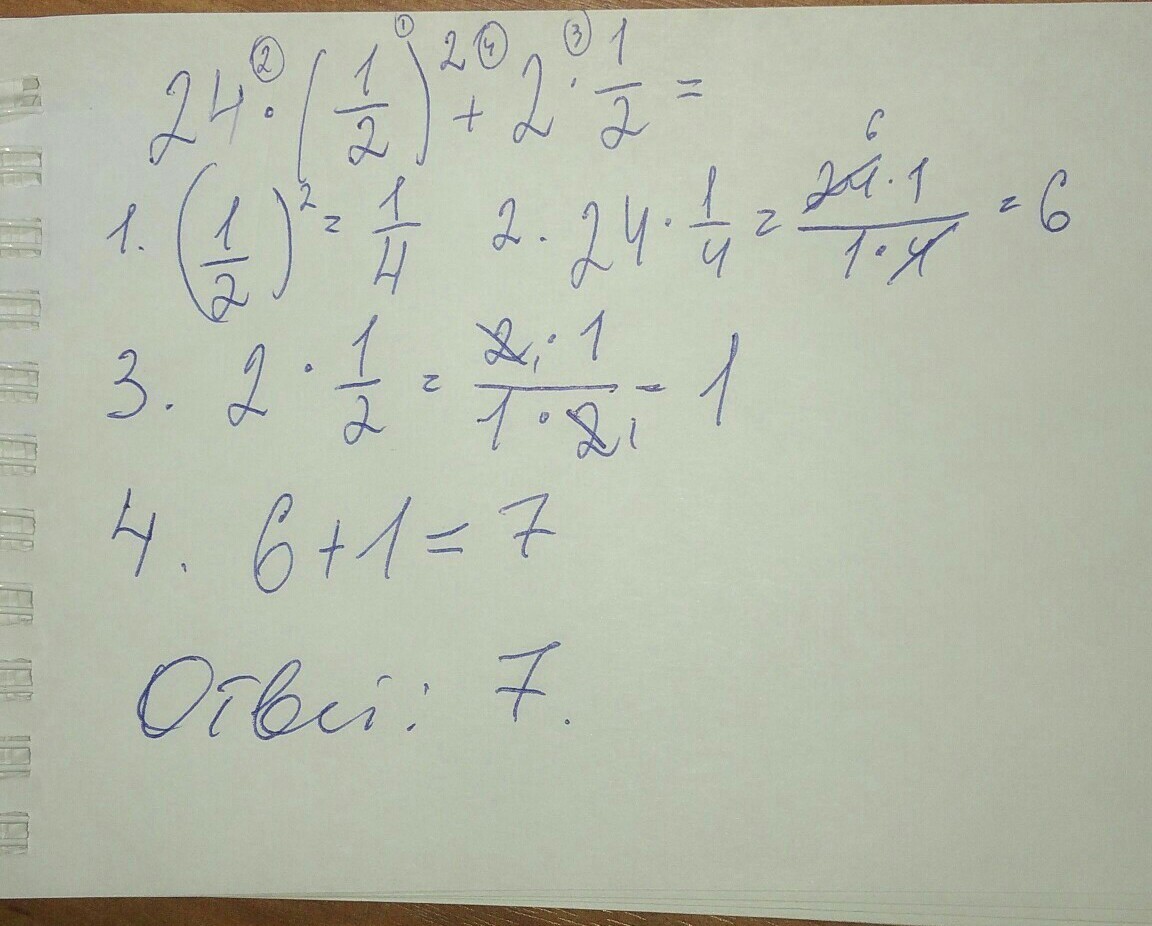 24 ·② (1/2)①² +④ 2 ·③ 1/2 =
1. (1/2)² = 1/4 2. 24 · 1/4 = 24 6 · 1 / 1 · 4 = 6
3. 2 · 1/2 = 2 1 · 1 / 1 · 2 1 = 1
4. 6 + 1 = 7
Ответ: 7.